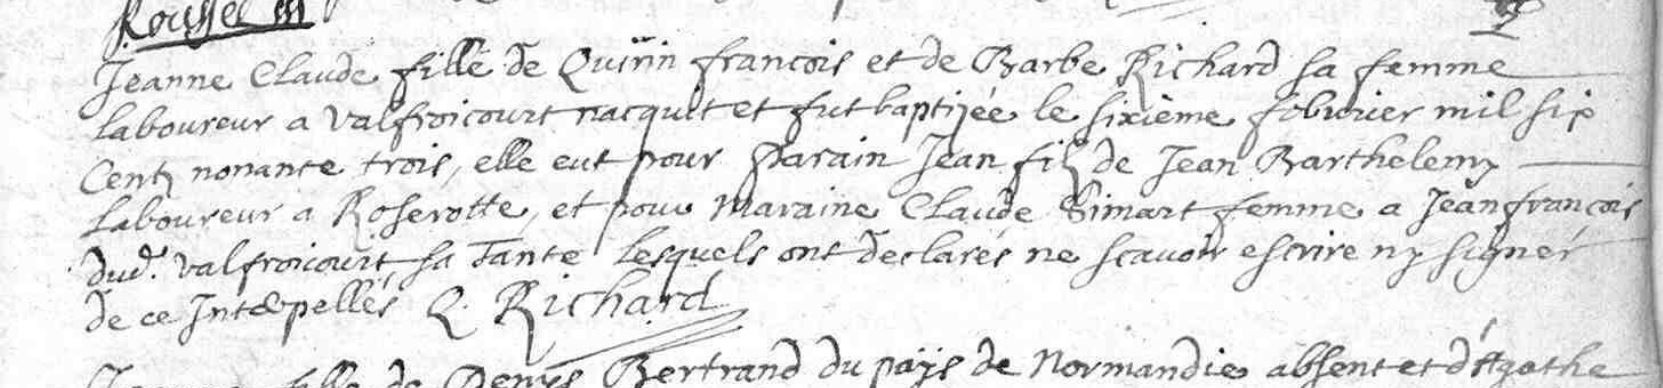 Roussel
Jeanne Claude fille de Quirin francois et de Barbe Richard sa femme
laboureur a valfroicourt nacquit et fut baptisée le sixième feburier mil six
Centz nonante trois, elle eut pour parain Jean filz de Jean Barthelemy
laboureur a Roserotte, et pour Maraine Claude Simart femme a Jean francois
dud. valfroicourt, sa Tante Lesquels ont declarés ne scavoir escrire ny signer
de ce Interpellés Q. Richard
fille de Denys Bertrand du pays de Normandie absent et d'Agathe